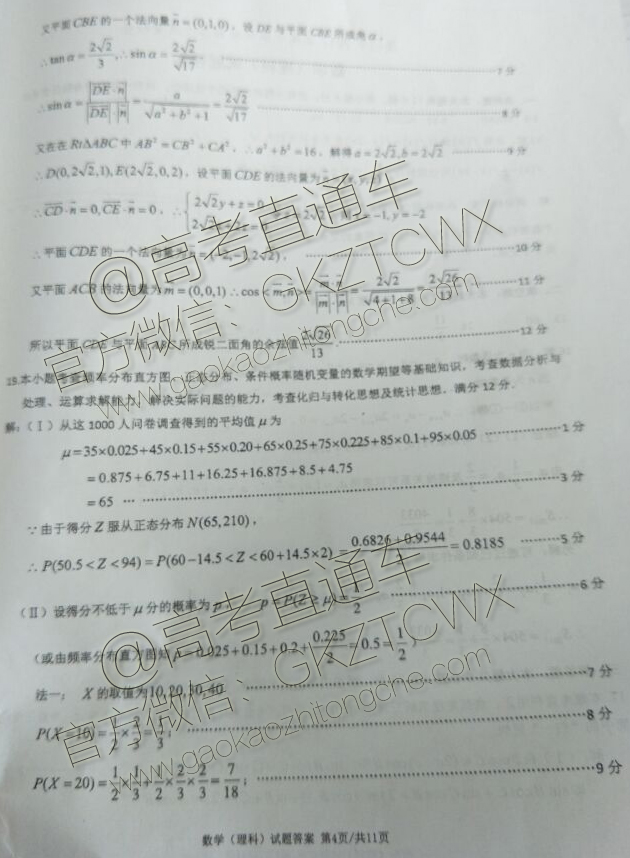 又平面 CBE 的一个法向量 n = (0,1,0), 设 DE 与平面 CBE 所成角 α,
∴ tan α = 2√2/3, ∴ sin α = 2√2/√17 7 分
∴ sin α = |DE · n| / |DE| · |n| = a/√(a² + b² + 1) = 2√2/√17 8 分
又在在 RtΔABC 中 AB² = CB² + CA², ∴ a² + b² = 16, 解得 a = 2√2, b = 2√2 9 分
∴ D(0,2√2,1), E(2√2,0,2), 设平面 CDE 的法向量为
∴ CD · n = 0, CE · n = 0, ∴ { 2√2y + z = 0 = −1, y = −2
∴ 平面 CDE 的一个法向量为 n = (−2,−1,2√2), 10 分
又平面 ACB 的法向量为 m = (0,0,1) ∴ cos < m, n > = m · n / |m| · |n| = 2√2/√(4+1+8) = 2√26/13 11 分
所以平面 CDE 与平面 ABC 所成锐二面角的余弦值 2√26/13 12 分
19.本小题考查频率分布直方图、正态分布、条件概率随机变量的数学期望等基础知识, 考查数据分析与
处理、运算求解能力、解决实际问题的能力, 考查化归与转化思想及统计思想. 满分 12 分.
解: (Ⅰ) 从这 1000 人问卷调查得到的平均值 μ 为
μ = 35×0.025+45×0.15+55×0.20+65×0.25+75×0.225+85×0.1+95×0.05 1 分
= 0.875+6.75+11+16.25+16.875+8.5+4.75
= 65 3 分
∵ 由于得分 Z 服从正态分布 N(65,210),
∴ P(50.5 < Z < 94) = P(60−14.5 < Z < 60+14.5×2) = (0.6826+0.9544)/2 = 0.8185 5 分
(Ⅱ) 设得分不低于 μ 分的概率为 p, p = P(Z ≥ μ) = 1/2 6 分
(或由频率分布直方图知 p = 0.025+0.15+0.2+0.225/2 = 0.5 = 1/2)
法一: X 的取值为 10,20,30,40 7 分
P(X = 10) = 1/2 × 2/3 = 1/3; 8 分
P(X = 20) = 1/2 × 1/3 + 1/2 × 2/3 × 2/3 = 7/18; 9 分
数学 (理科) 试题答案 第4页/共11页
@高考直通车
官方微信: GKZTCWX
www.gaokaozhitongche.com
@高考直通车
官方微信: GKZTCWX
www.gaokaozhitongche.com